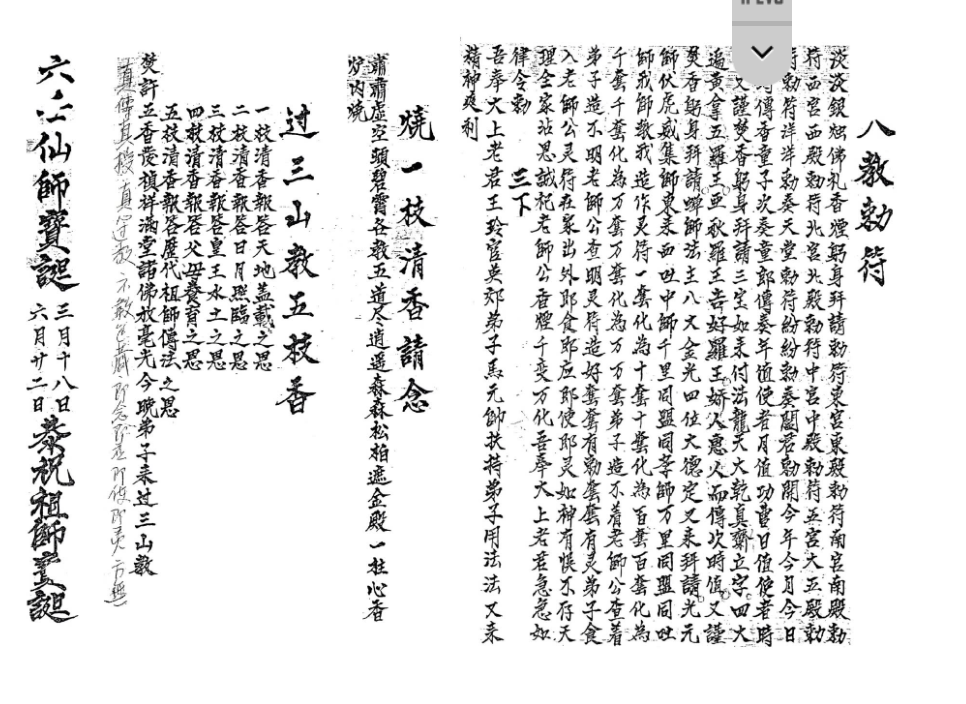 八教勅符
淡淡銀烛佛礼香煙躬身拜請勅符東宮東殿勅符南宮南殿勅
符西宮西殿勅符北宮北殿勅符中宮中殿勅符五宮大五殿勅
符勅符洋洋勅奏天堂勅符紛紛勅奏閻君勅開今年今月今日
時傳香童子次奏童郎傳奏年值使者月值功曹日值使者時
又謹焚香躬身拜請三宝如来付法龍天大乾真齋立字四大
遍黄拿五羅王亚秋羅王吉好羅王娇人惠人而傳次時值又謹
焚香躬身拜請蝉師法主八丈金光四位大德定又来拜請光元
師伏虎威集師東来西吐中師千里同盟同幸師万里同盟同吐
師我師教我造作灵符一套化為十套十套化為百套百套化為
千套千套化為万套万套化為万万套弟子造不着老師公查着
弟子造不明老師公查明灵符造好套套有勅套套有灵弟子食
入老師公灵符在家出外耶食耶应耶使耶灵如神有悞不存天
理全家沾恩誠祀老師公香煙千变万化吾奉大上老君急急如
律令勅 三下
吾奉大上老君王玲官英郊弟子馬元帥扶持弟子用法法又来
精神爽利
燒一枝清香請念
肅肅虛空頭碧霄各教五道尽逍遥森森松柏遮金殿一柱心香
炉内燒
过三山教五枝香
一枝清香報答天地盖載之恩
二枝清香報答日月照臨之恩
三枝清香報答皇王水土之恩
四枝清香報答父母養育之恩
五枝清香報答歷代祖師傳法之恩
焚許五香发禎祥滿堂諸佛放毫光今晚弟子来过三山教
真傳真授真过教不教
六仙師寶誕 三月十八日 六月廿二日 恭祝祖師宝誕